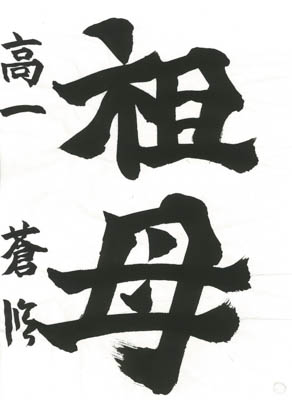 祖母
高一 蒼